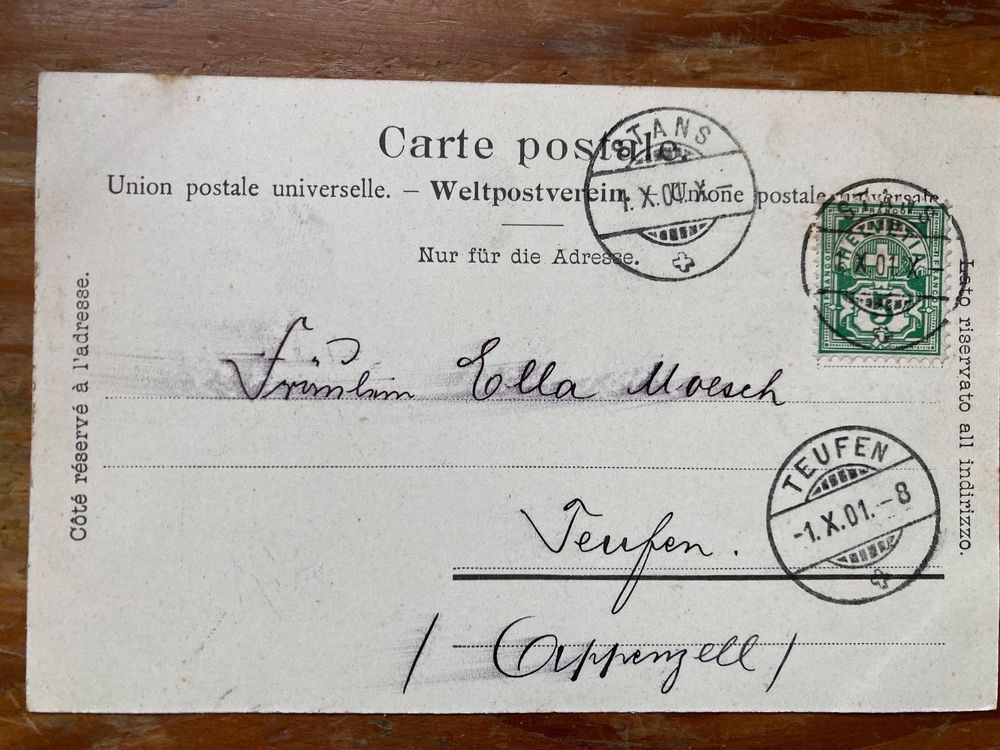 Carte postale.
Union postale universelle. – Weltpostverein. – Unione postale universale
Nur für die Adresse.
STANS
1. X. 01. X–
HELVETIA
FRANCO
5
Côté réservé à l'adresse.
Lato riservato all indirizzo.
Fräulein Ella Moesch
TEUFEN
-1.X.01.-8
Teufen.
/ Appenzell /